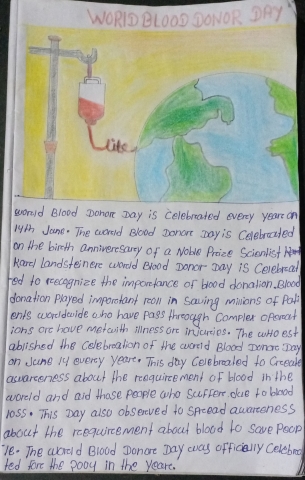 WORLD BLOOD DONOR DAY
Life
World Blood Donor Day is Celebrated every year on
14th June. The world Blood Donor Day is Celebrated
on the birth anniversary of a Noble Prize Scientist
Karl Landsteiner world Blood Donor Day is Celebrat
-ed to recognize the importance of blood donation. Blood
donation Played important roll in Saving millions of Pati
ents worldwide who have pass through Complex operat
ions or have met with illness or injuries. The WHO est
ablished the Celebration of the world Blood Donor Day
on June 14 every Year. This day Celebrated to Create
awareness about the requirement of blood in the
world and aid those people who Suffer due to blood
loss. This Day also observed to spread awareness
about the requirement about blood to save Peop
le. The World Blood Donor Day was officially Celebra
ted for the 2004 in the Year.